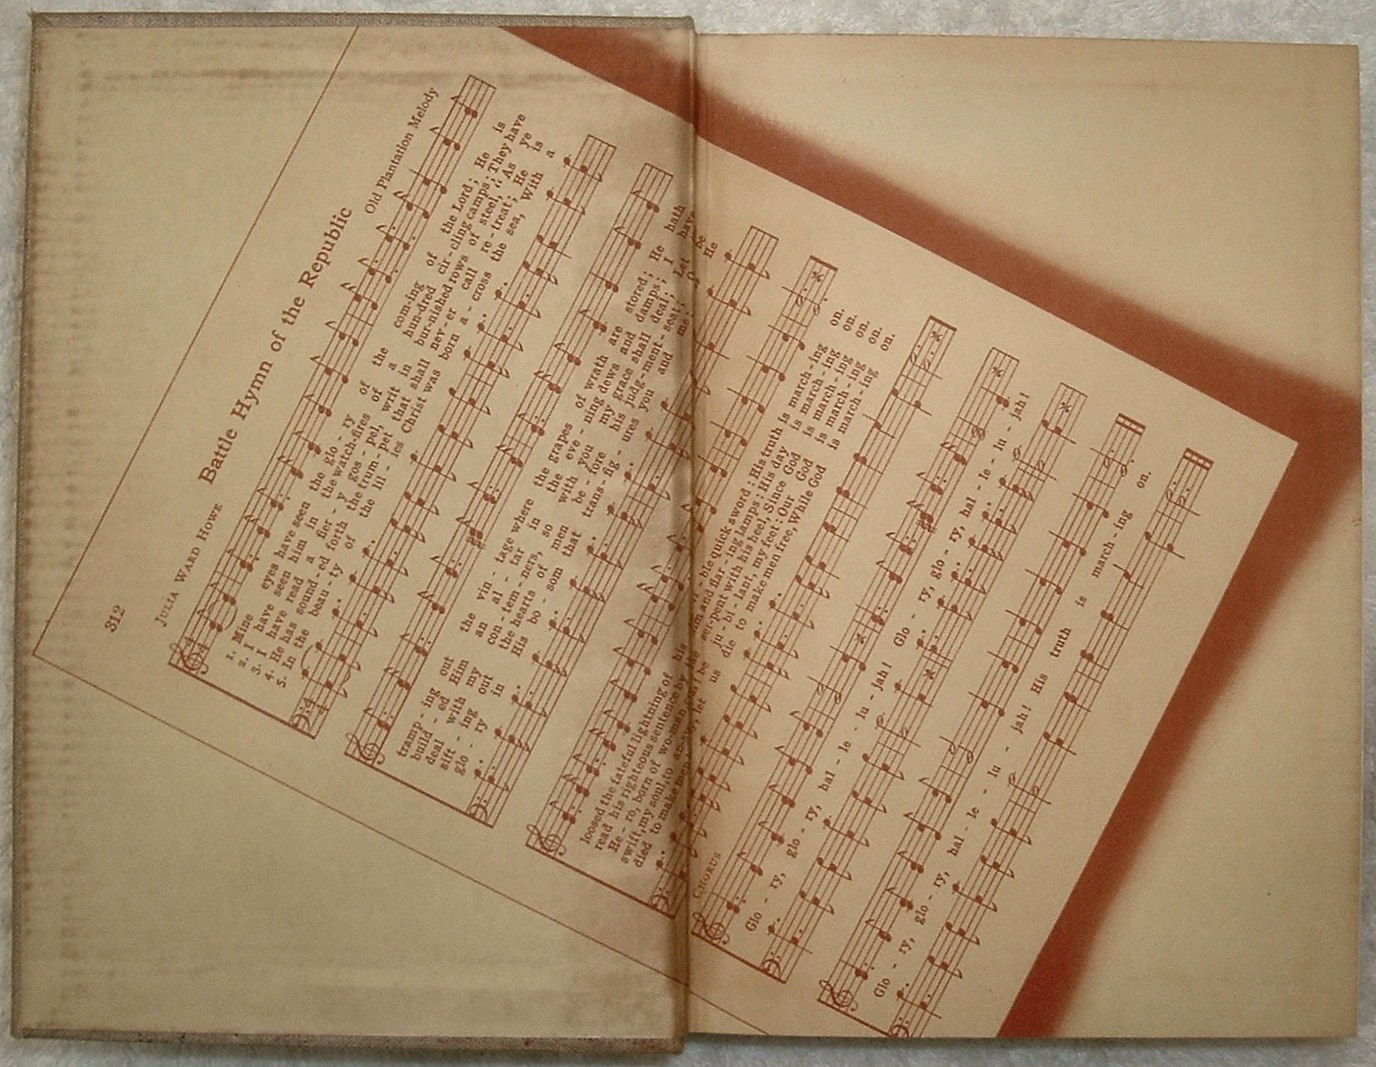 312
Battle Hymn of the Republic
JULIA WARD HOWE
Old Plantation Melody
1. Mine eyes have seen the glo - ry of the com-ing of the Lord; He is
2. I have seen him in the watch-fires of a hun-dred cir-cling camps; They have
3. I have read a fier - y gos - pel, writ in bur-nished rows of steel, "As ye
4. He has sound-ed forth the trum-pet that shall nev-er call re-treat; He is
5. In the beau-ty of the lil - ies Christ was born a - cross the sea, With a
tramp - ing out the vin - tage where the grapes of wrath are stored; He hath
build - ed Him an al - tar in the eve - ning dews and damps; I have
deal with my con - tem - ners, so with you my grace shall deal; Let the
sift - ing out the hearts of men be - fore his judg-ment-seat;
glo - ry in His bo - som that trans - fig - ures you and me;
loosed the fateful lightning of his quick sword: His truth is march-ing on.
read his righteous sentence by the dim and flar-ing lamps: His day is march-ing on.
He - ro, born of wo-man, ser-pent with his heel, Since God is march-ing on.
swift, my soul, to ju - bi - lant, my feet: Our God is march-ing on.
died to make men let us die to make men free, While God is march-ing on.
CHORUS
Glo - ry, glo - ry, hal - le - lu - jah! Glo - ry, glo - ry, hal - le - lu - jah!
Glo - ry, glo - ry, hal - le - lu - jah! His truth is march - ing on.